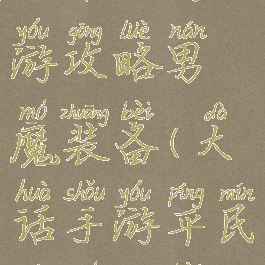 yóu gōng lüè nán
游攻略男
mó zhuāng bèi dà
魔装备(大
huà shǒu yóu píng mín
话手游平民